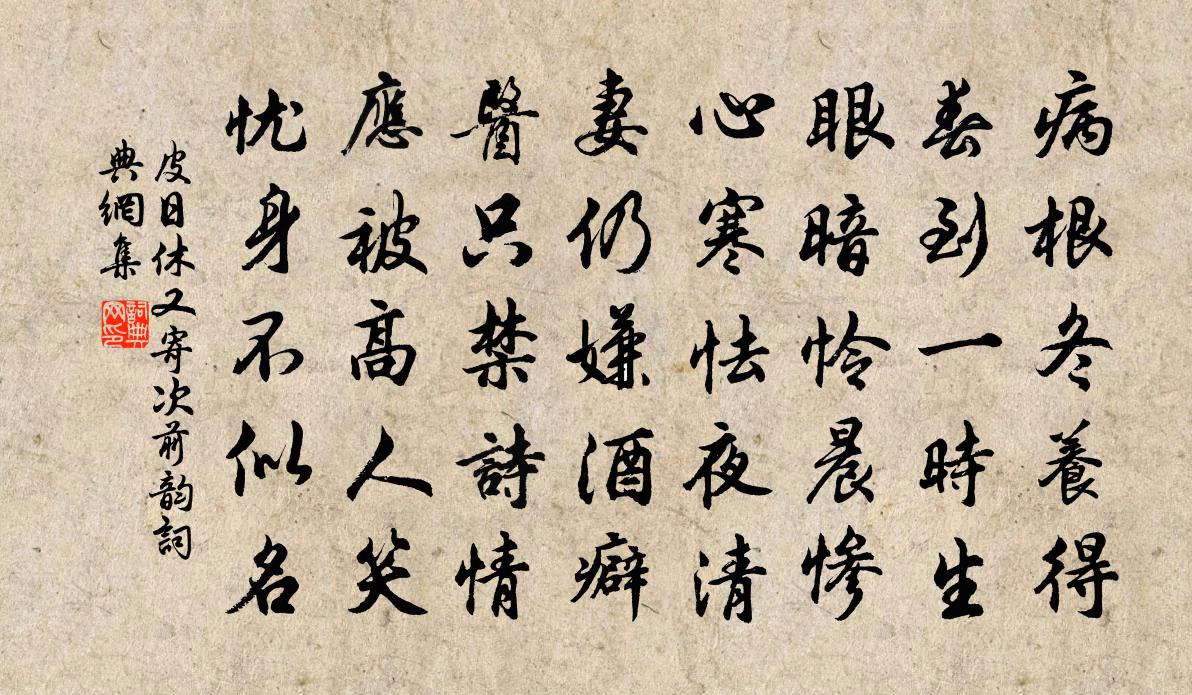 病根冬養得
春到一時生
眼暗怜晨慘
心寒怯夜清
妻仍嫌酒癖
醫只禁詩情
應被高人笑
忧身不似名
皮日休又寄次前韵詞
典網集
詞典
网印